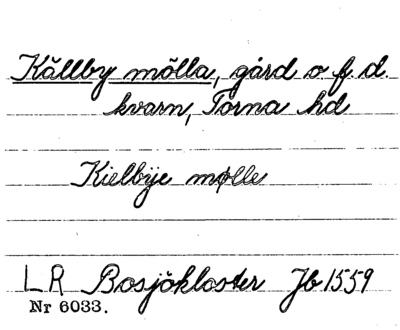 Källby mölla, gård o f. d.
kvarn, Torna hd
Kielbÿe mølle
LR Bosjökloster Jb 1559
Nr 6033.